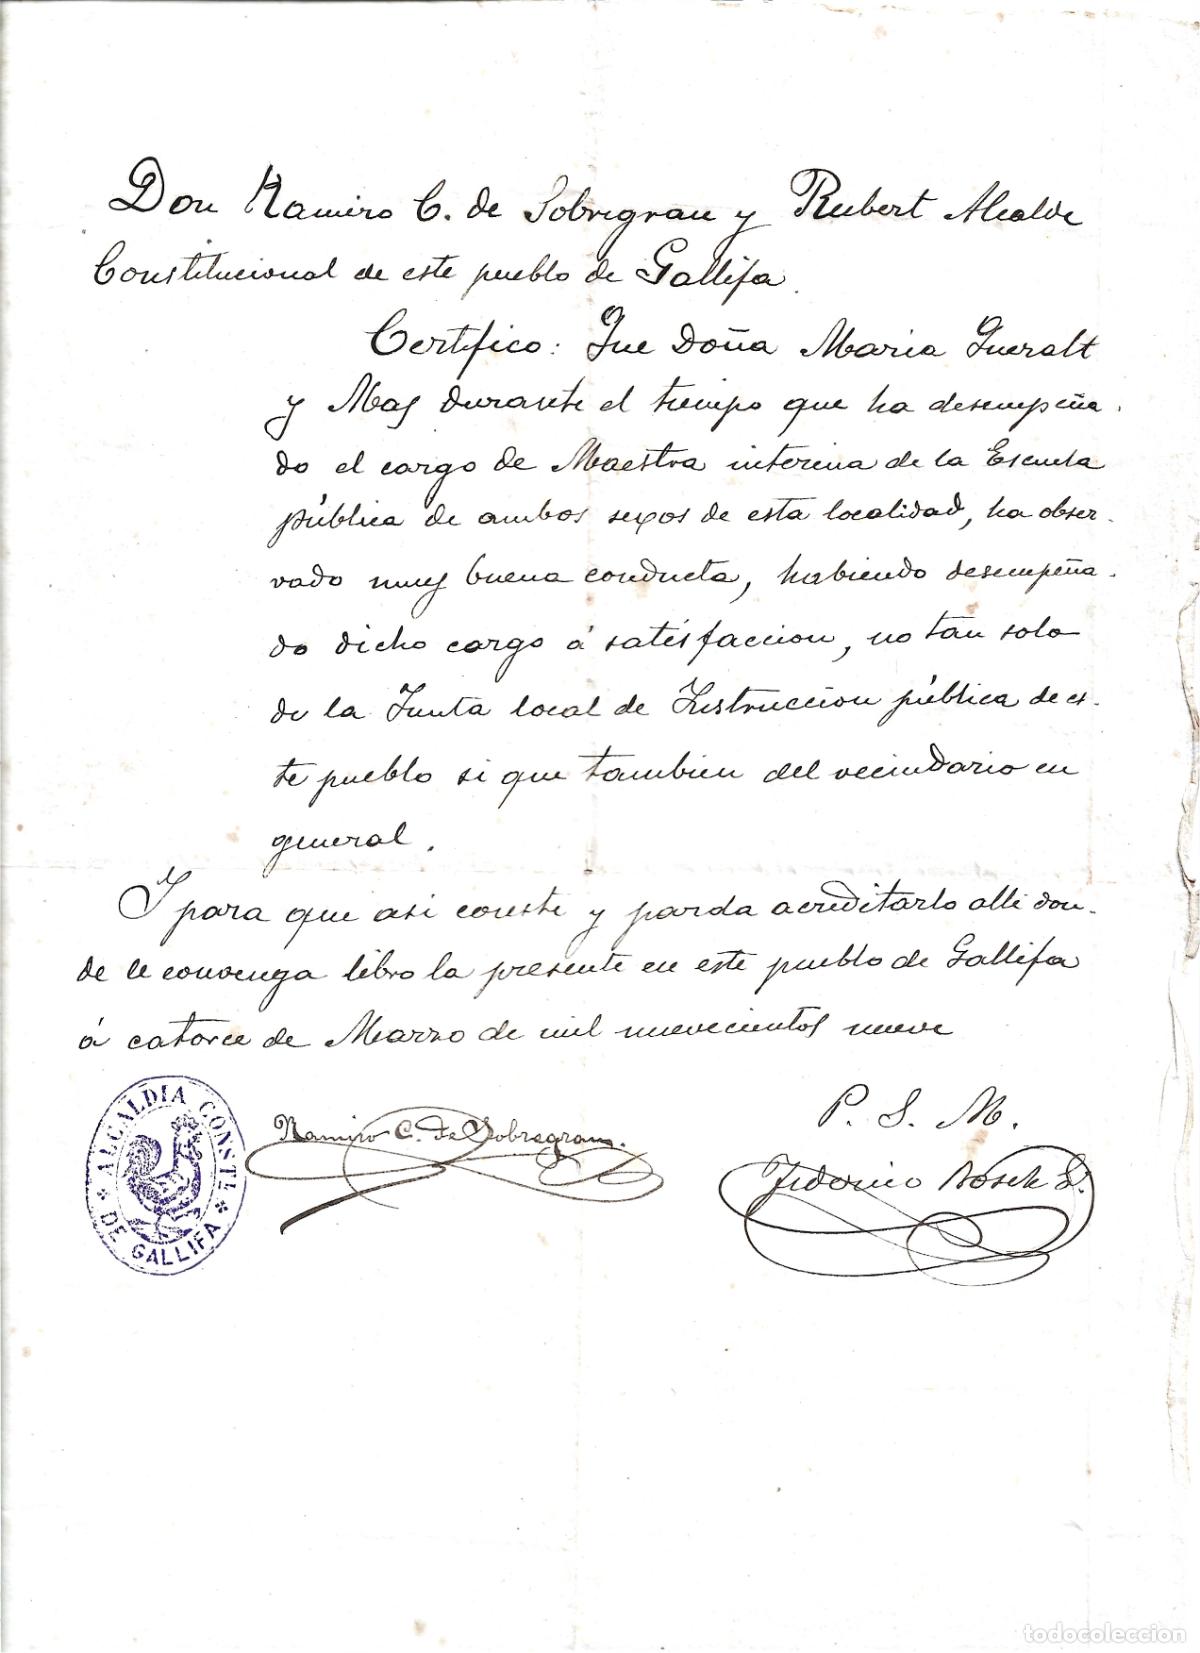 Don Ramiro C. de Sobregrau y Rubert Alcalde
Constitucional de este pueblo de Gallifa.
Certifico: Que Doña Maria Queralt
y Mas durante el tiempo que ha desempeña-
do el cargo de Maestra interina de la Escuela
pública de ambos sexos de esta localidad, ha obser-
vado muy buena conducta, habiendo desempeña-
do dicho cargo á satisfaccion, no tan solo
de la Junta local de Instrucción pública de es-
te pueblo si que tambien del vecindario en
general.
Y para que asi conste y pueda acreditarlo alli don-
de le convenga libro la presente en este pueblo de Gallifa
á catorce de Marzo de mil nuevecientos nueve
P. S. M.
Ramiro C. de Sobregrau.
Federico Bosch S.
ALCALDIA CONSTL.
DE GALLIFA
todocoleccion